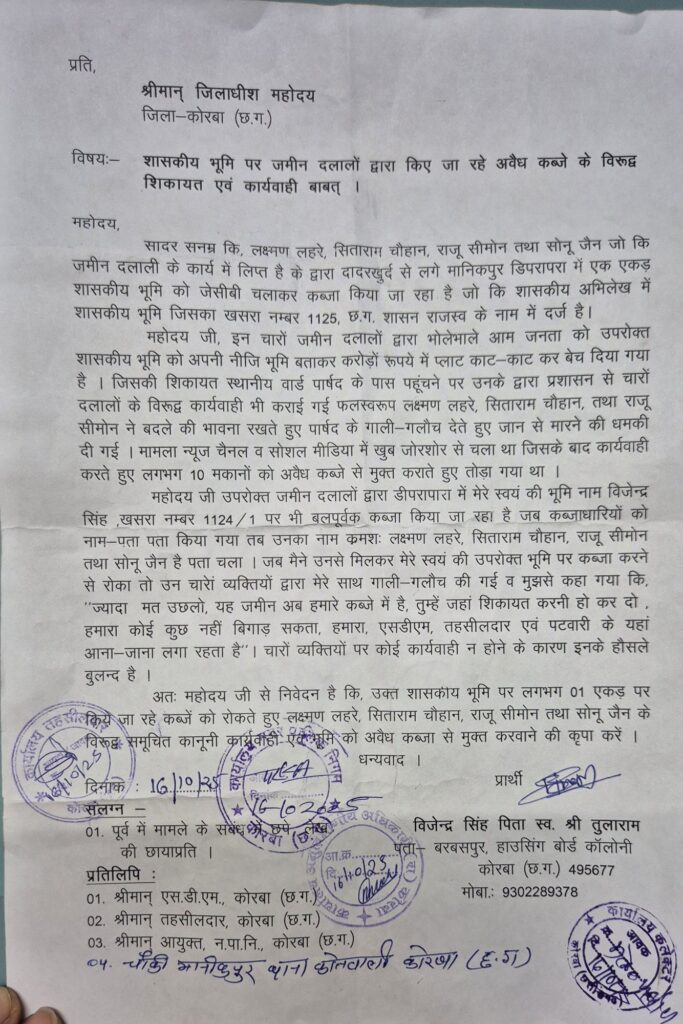 प्रति,
श्रीमान् जिलाधीश महोदय
जिला–कोरबा (छ.ग.)
विषयः– शासकीय भूमि पर जमीन दलालों द्वारा किए जा रहे अवैध कब्जे के विरूद्व
शिकायत एवं कार्यवाही बाबत् ।
महोदय,
सादर सनम्र कि, लक्ष्मण लहरे, सिताराम चौहान, राजू सीमोन तथा सोनू जैन जो कि
जमीन दलाली के कार्य में लिप्त है के द्वारा दादरखुर्द से लगे मानिकपुर डिपरापरा में एक एकड़
शासकीय भूमि को जेसीबी चलाकर कब्जा किया जा रहा है जो कि शासकीय अभिलेख में
शासकीय भूमि जिसका खसरा नम्बर 1125, छ.ग. शासन राजस्व के नाम में दर्ज है।
महोदय जी, इन चारों जमीन दलालों द्वारा भोलेभाले आम जनता को उपरोक्त
शासकीय भूमि को अपनी नीजि भूमि बताकर करोड़ों रूपये में प्लाट काट–काट कर बेच दिया गया
है । जिसकी शिकायत स्थानीय वार्ड पार्षद के पास पहूंचने पर उनके द्वारा प्रशासन से चारों
दलालों के विरूद्व कार्यवाही भी कराई गई फलस्वरूप लक्ष्मण लहरे, सिताराम चौहान, तथा राजू
सीमोन ने बदले की भावना रखते हुए पार्षद के गाली–गलौच देते हुए जान से मारने की धमकी
दी गई । मामला न्यूज चैनल व सोशल मीडिया में खुब जोरशोर से चला था जिसके बाद कार्यवाही
करते हुए लगभग 10 मकानों को अवैध कब्जे से मुक्त कराते हुए तोड़ा गया था ।
महोदय जी उपरोक्त जमीन दलालों द्वारा डीपरापारा में मेरे स्वयं की भूमि नाम विजेन्द्र
सिंह ,खसरा नम्बर 1124/1 पर भी बलपूर्वक कब्जा किया जा रहा है जब कब्जाधारियों को
नाम–पता पता किया गया तब उनका नाम क्रमशः लक्ष्मण लहरे, सिताराम चौहान, राजू सीमोन
तथा सोनू जैन है पता चला । जब मैने उनसे मिलकर मेरे स्वयं की उपरोक्त भूमि पर कब्जा करने
से रोका तो उन चारों व्यक्तियों द्वारा मेरे साथ गाली–गलौच की गई व मुझसे कहा गया कि,
''ज्यादा मत उछलो, यह जमीन अब हमारे कब्जे में है, तुम्हें जहां शिकायत करनी हो कर दो ,
हमारा कोई कुछ नहीं बिगाड़ सकता, हमारा, एसडीएम, तहसीलदार एवं पटवारी के यहां
आना–जाना लगा रहता है''। चारों व्यक्तियों पर कोई कार्यवाही न होने के कारण इनके हौसले
बुलन्द है ।
अतः महोदय जी से निवेदन है कि, उक्त शासकीय भूमि पर लगभग 01 एकड़ पर
किये जा रहे कब्जें को रोकते हुए लक्ष्मण लहरे, सिताराम चौहान, राजू सीमोन तथा सोनू जैन के
विरूद्व समूचित कानूनी कार्यवाही एवं भूमि को अवैध कब्जा से मुक्त करवाने की कृपा करें ।
धन्यवाद ।
दिनांक : 16/10/25
प्रार्थी
संलग्न –
01. पूर्व में मामले के संबंध में छपे लेख
की छायाप्रति ।
विजेन्द्र सिंह पिता स्व. श्री तुलाराम
पता– बरबसपुर, हाउसिंग बोर्ड कॉलोनी
कोरबा (छ.ग.) 495677
मोबा.: 9302289378
प्रतिलिपि :
01. श्रीमान् एस.डी.एम., कोरबा (छ.ग.)
02. श्रीमान् तहसीलदार, कोरबा (छ.ग.)
03. श्रीमान् आयुक्त, न.पा.नि., कोरबा (छ.ग.)
04. चौकी मानीकपुर थाना कोतवाली कोरबा (छ.ग)
कार्यालय तहसीलदार
16/10/25
कार्यालय नगर निगम
16-10-2025
कोरबा (छ.ग.)
आ.क्र.
दि. 16/10/25
कार्यालय कलेक्टर
आवक
कोरबा (छत्तीसगढ़)